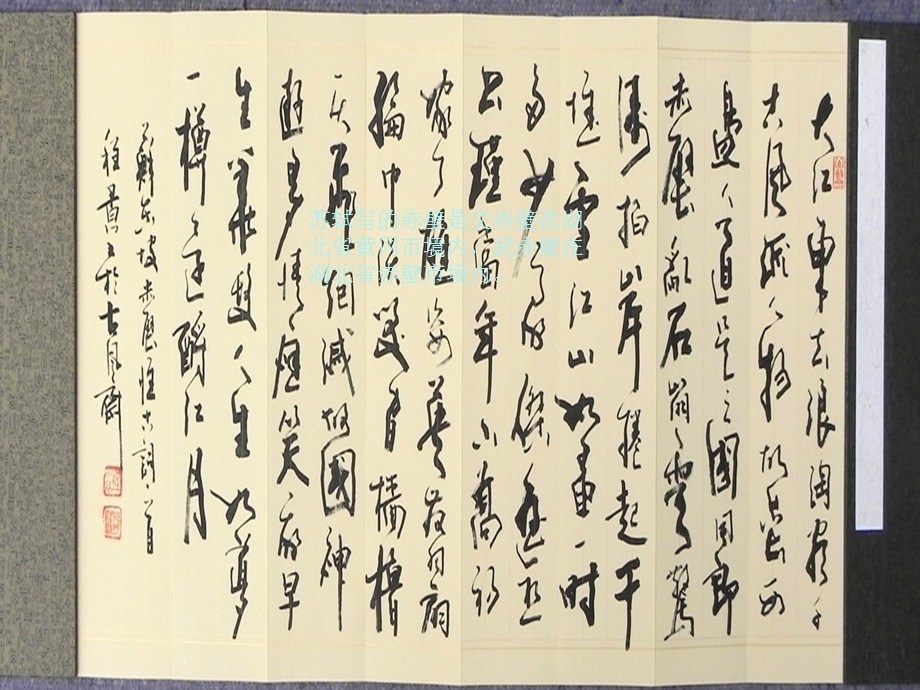 大江東去浪淘尽千
古風流人物故垒西
邊人道是三國周郎
赤壁亂石崩雲驚
濤拍岸捲起千
堆雪江山如畫一時
多少豪傑遥想
公瑾當年小喬初
嫁了雄姿英發羽扇
綸巾談笑間樯櫓
灰飛烟滅故國神
遊多情應笑我早
生華髮人生如夢
一樽還酹江月
蘇東坡赤壁懷古詞一首
書於古月齋
苏轼写的赤壁是文赤壁在湖
北省黄冈市境内，武赤壁在
湖北省赤壁市境内。